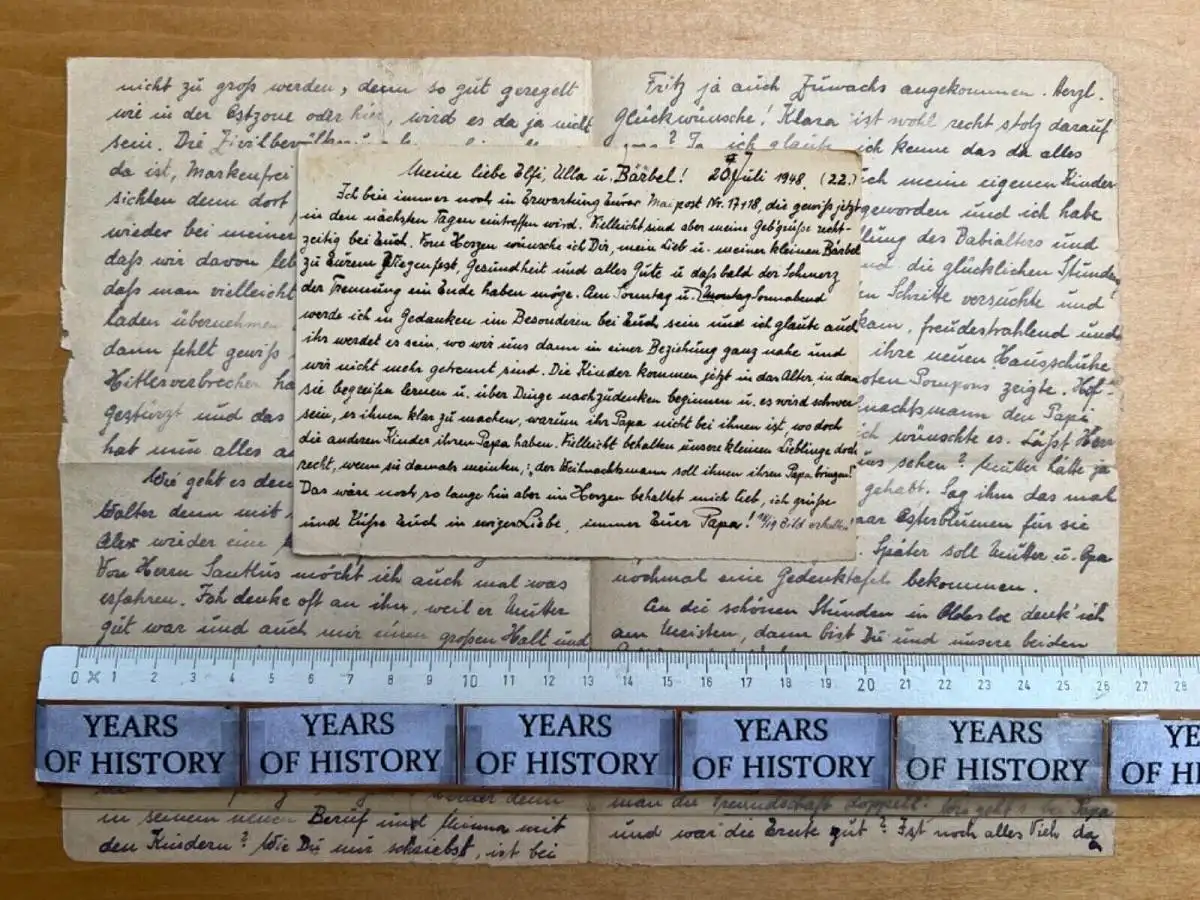 nicht zu groß werden, denn so gut geregelt
wie in der Ostzone oder hier, wird es da ja nicht
sein. Die
da ist, Markenfrei
sichten denn dort
wieder bei meiner
daß wir davon
daß man vielleicht
laden übernehmen
dann fehlt gewiß
Hitlerverbrecher
gestürzt und das
hat nun alles
Wie geht es
Walter denn mit
Alex wieder eine
Von Herrn Santlus möcht ich auch mal was
erfahren. Ich denke oft an ihn, weil er Mutter
gut war und auch mir einen großen Halt und
in seinem neuen Beruf und Minna mit
den Kindern? Wie Du mir schriebst, ist bei
Meine liebe Elfi, Ulla u. Bärbel! Juli 1948. (22.)
Ich bin immer noch in Erwartung Eurer Maipost Nr. 17+18, die gewiß jetzt
in den nächsten Tagen eintreffen wird. Vielleicht sind aber meine Geb'grüße recht-
zeitig bei Euch. Vom Herzen wünsche ich Dir, mein Lieb u. meiner kleinen Bärbel
zu Eurem Wiegenfest, Gesundheit und alles Gute u daß bald der Schmerz
der Trennung ein Ende haben möge. Am Sonntag u. Sonnabend
werde ich in Gedanken im Besonderen bei Euch sein und ich glaube auch
ihr werdet es sein, wo wir uns dann in einer Beziehung ganz nahe und
wir nicht mehr getrennt sind. Die Kinder kommen jetzt in das Alter in dem
sie begreifen lernen u. über Dinge nachzudenken beginnen u. es wird schwer
sein, es ihnen klar zu machen, warum ihr Papa nicht bei ihnen ist, wo doch
die anderen Kinder ihren Papa haben. Vielleicht behalten unsere kleinen Lieblinge doch
recht, wenn sie damals meinten, der Weihnachtsmann soll ihnen ihren Papa bringen!
Das wäre noch so lange hin aber im Herzen behaltet mich lieb, ich grüße
und Küsse Euch in ewiger Liebe, immer Euer Papa! Bild erhalten!
Fritz ja auch Zuwachs angekommen. Herzl.
Glückwünsche! Klara ist wohl recht stolz darauf
ich glaube ich kenne das da alles
ich meine eigenen Kinder
geworden und ich habe
des Babialters und
die glücklichen Stunden
Schritte versuchte und
kam, freudestrahlend und
ihre neuen Hausschuhe
roten Pompons zeigte. Hof-
den Papi
ich wünschte es. Läßt Herr
uns sehen? Mutter hätte ja
gehabt. Sag ihm das mal
paar Osterblumen für sie
Später soll Mutter u. Opa
nochmal eine Gedenktafel bekommen.
An die schönen Stunden in Oldesloe denk' ich
am Meisten, dann bist Du und unsere beiden
man die Freundschaft doppelt!
und war die Ernte gut? Ist noch alles Vieh da
0 1 2 3 4 5 6 7 8 9 10 11 12 13 14 15 16 17 18 19 20 21 22 23 24 25 26 27 28
YEARS OF HISTORY
YEARS OF HISTORY
YEARS OF HISTORY
YEARS OF HISTORY
YEARS OF HISTORY
YE
OF H